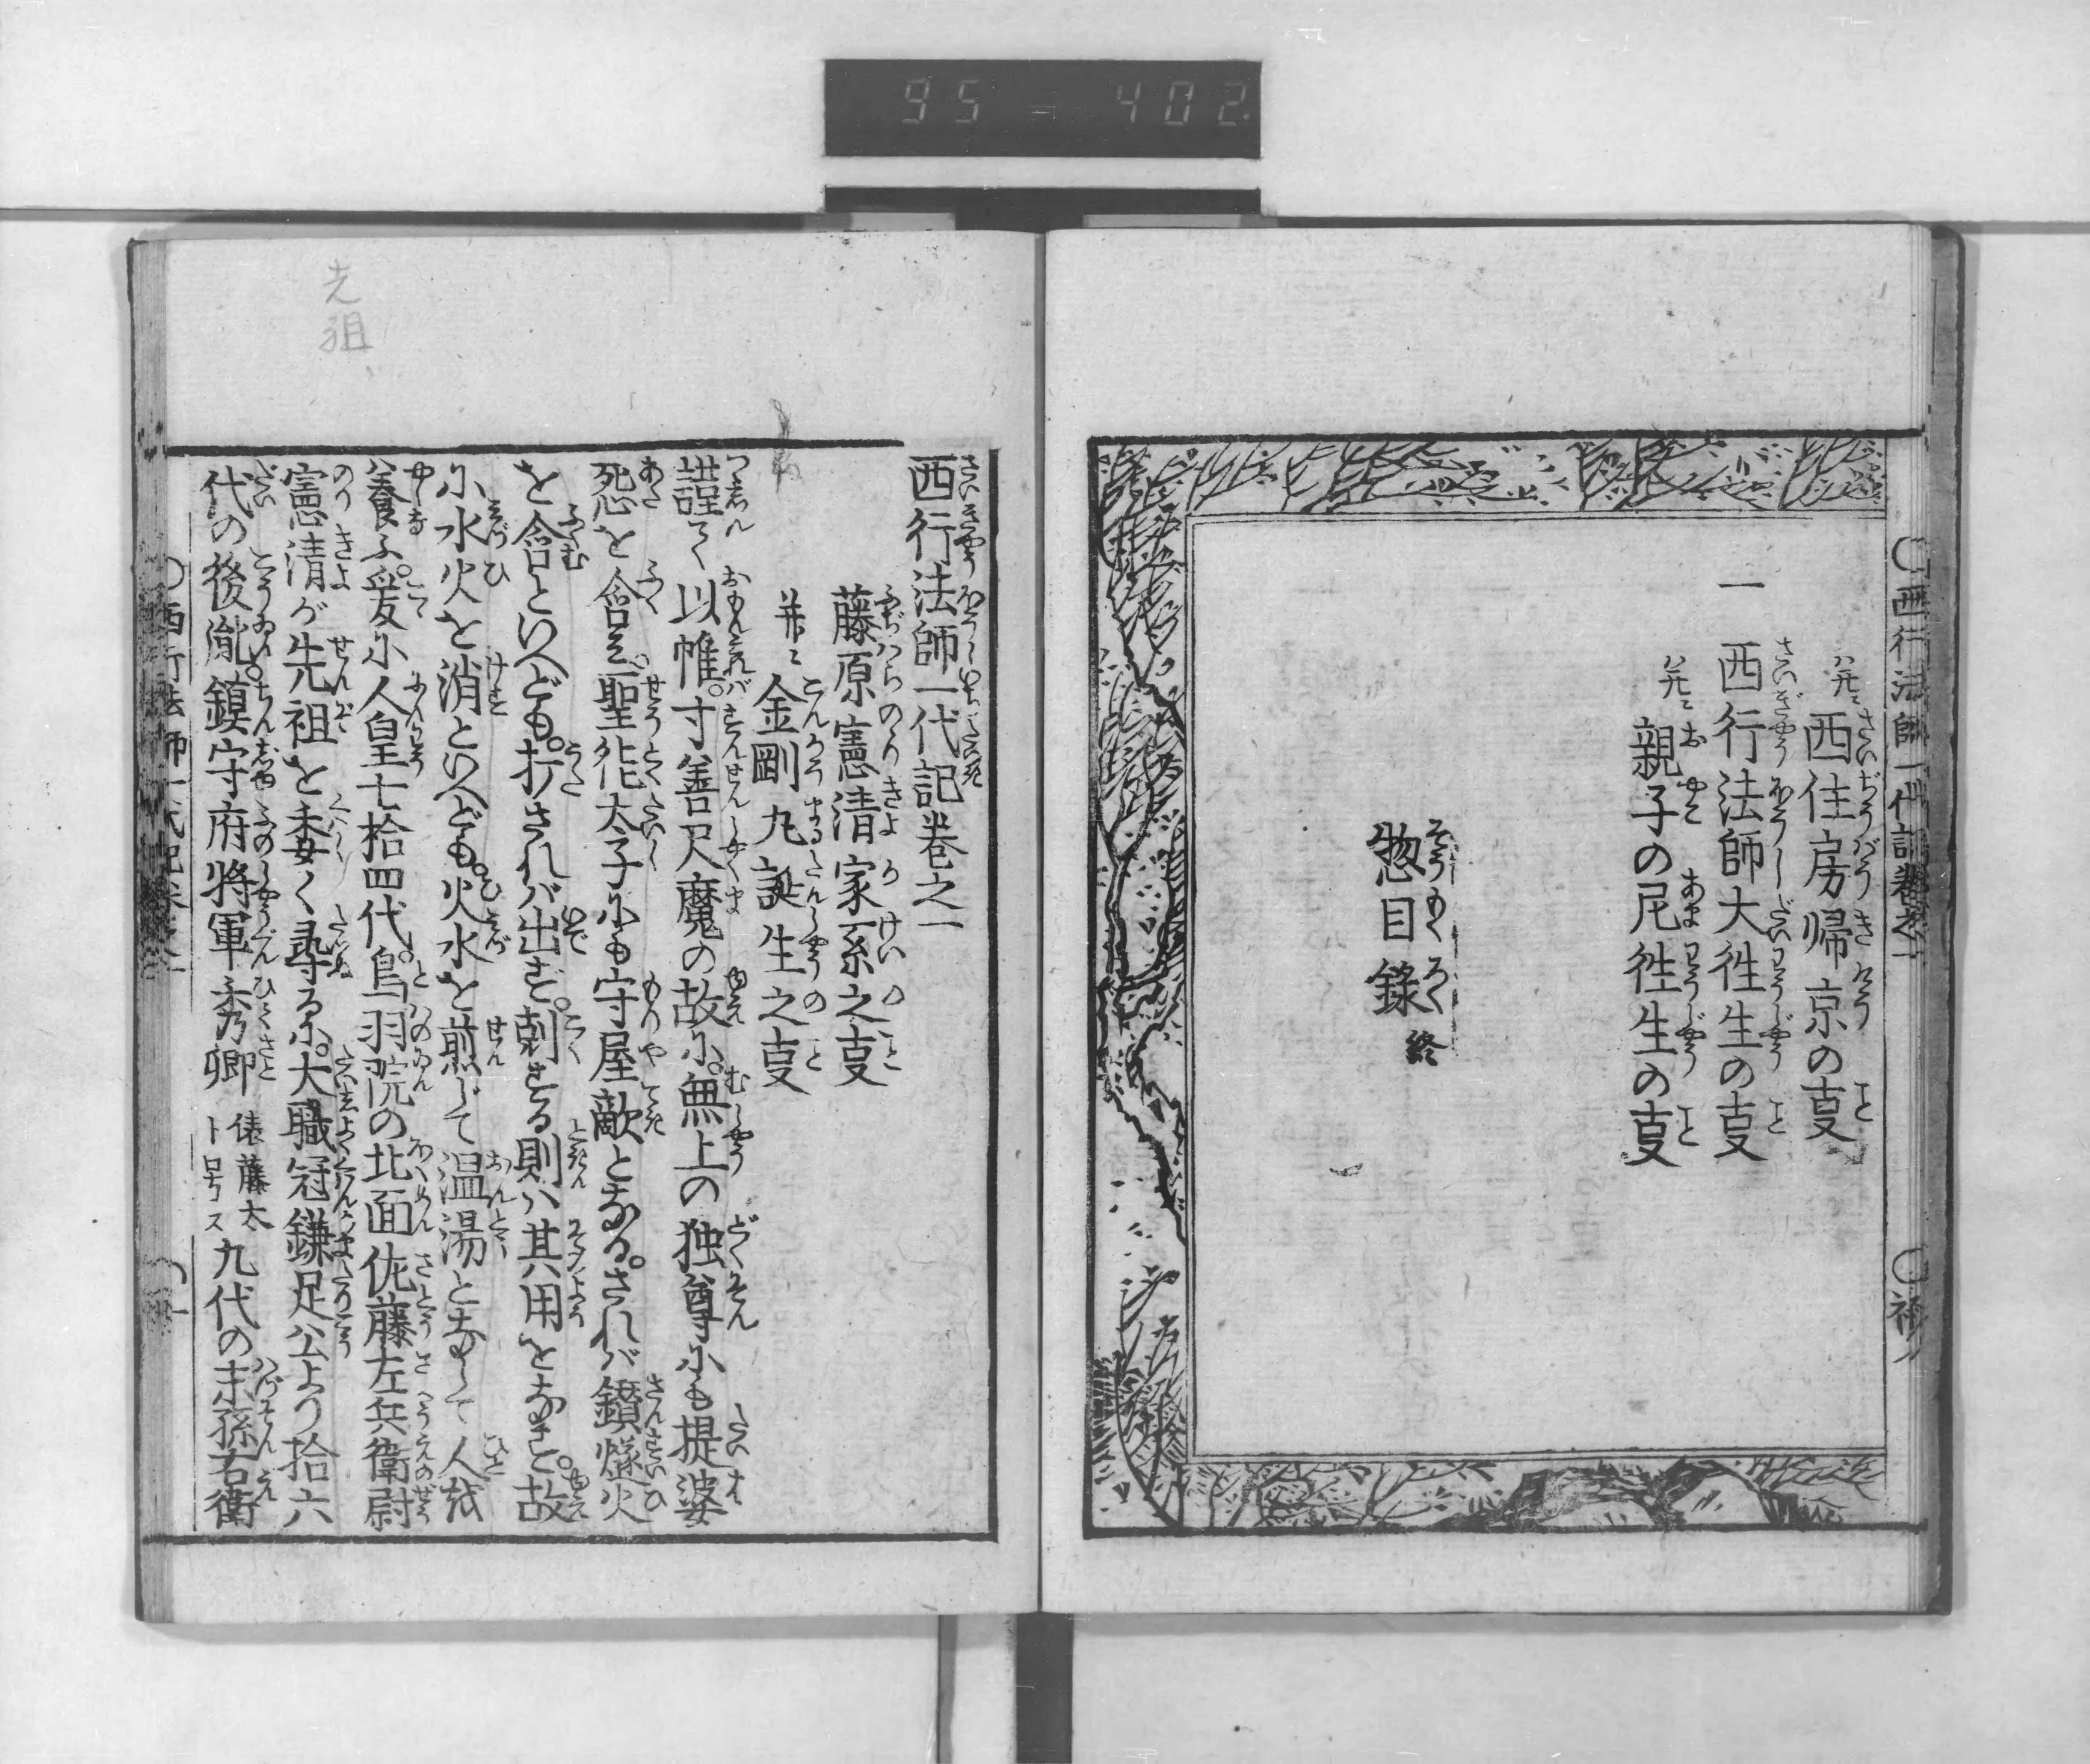 95 - 402
西行法師一代記巻之一
并ニ西住房帰京の叓
一 西行法師大徃生の叓
并ニ親子の尼徃生の叓
惣目録終
先祖
西行法師一代記巻之一
藤原憲清家系之叓
并ニ金剛丸誕生之叓
謹て以惟。寸善尺魔の故に。無上の独尊にも提婆
怨を含ミ。聖徳太子にも守屋敵となる。されば鑚燧火
を含といへども。打されバ出ず。剋する則ハ其用をなさず。故
に水火を消といへども。火水を煎じて温湯となして人を
養ふ。爰に人皇七拾四代。鳥羽院の北面佐藤左兵衛尉
憲清が先祖を委く尋るに。大職冠鎌足公より拾六
代の後胤。鎮守府将軍秀郷俵藤太ト号ス九代の末孫右衛
西行法師一代記巻之一